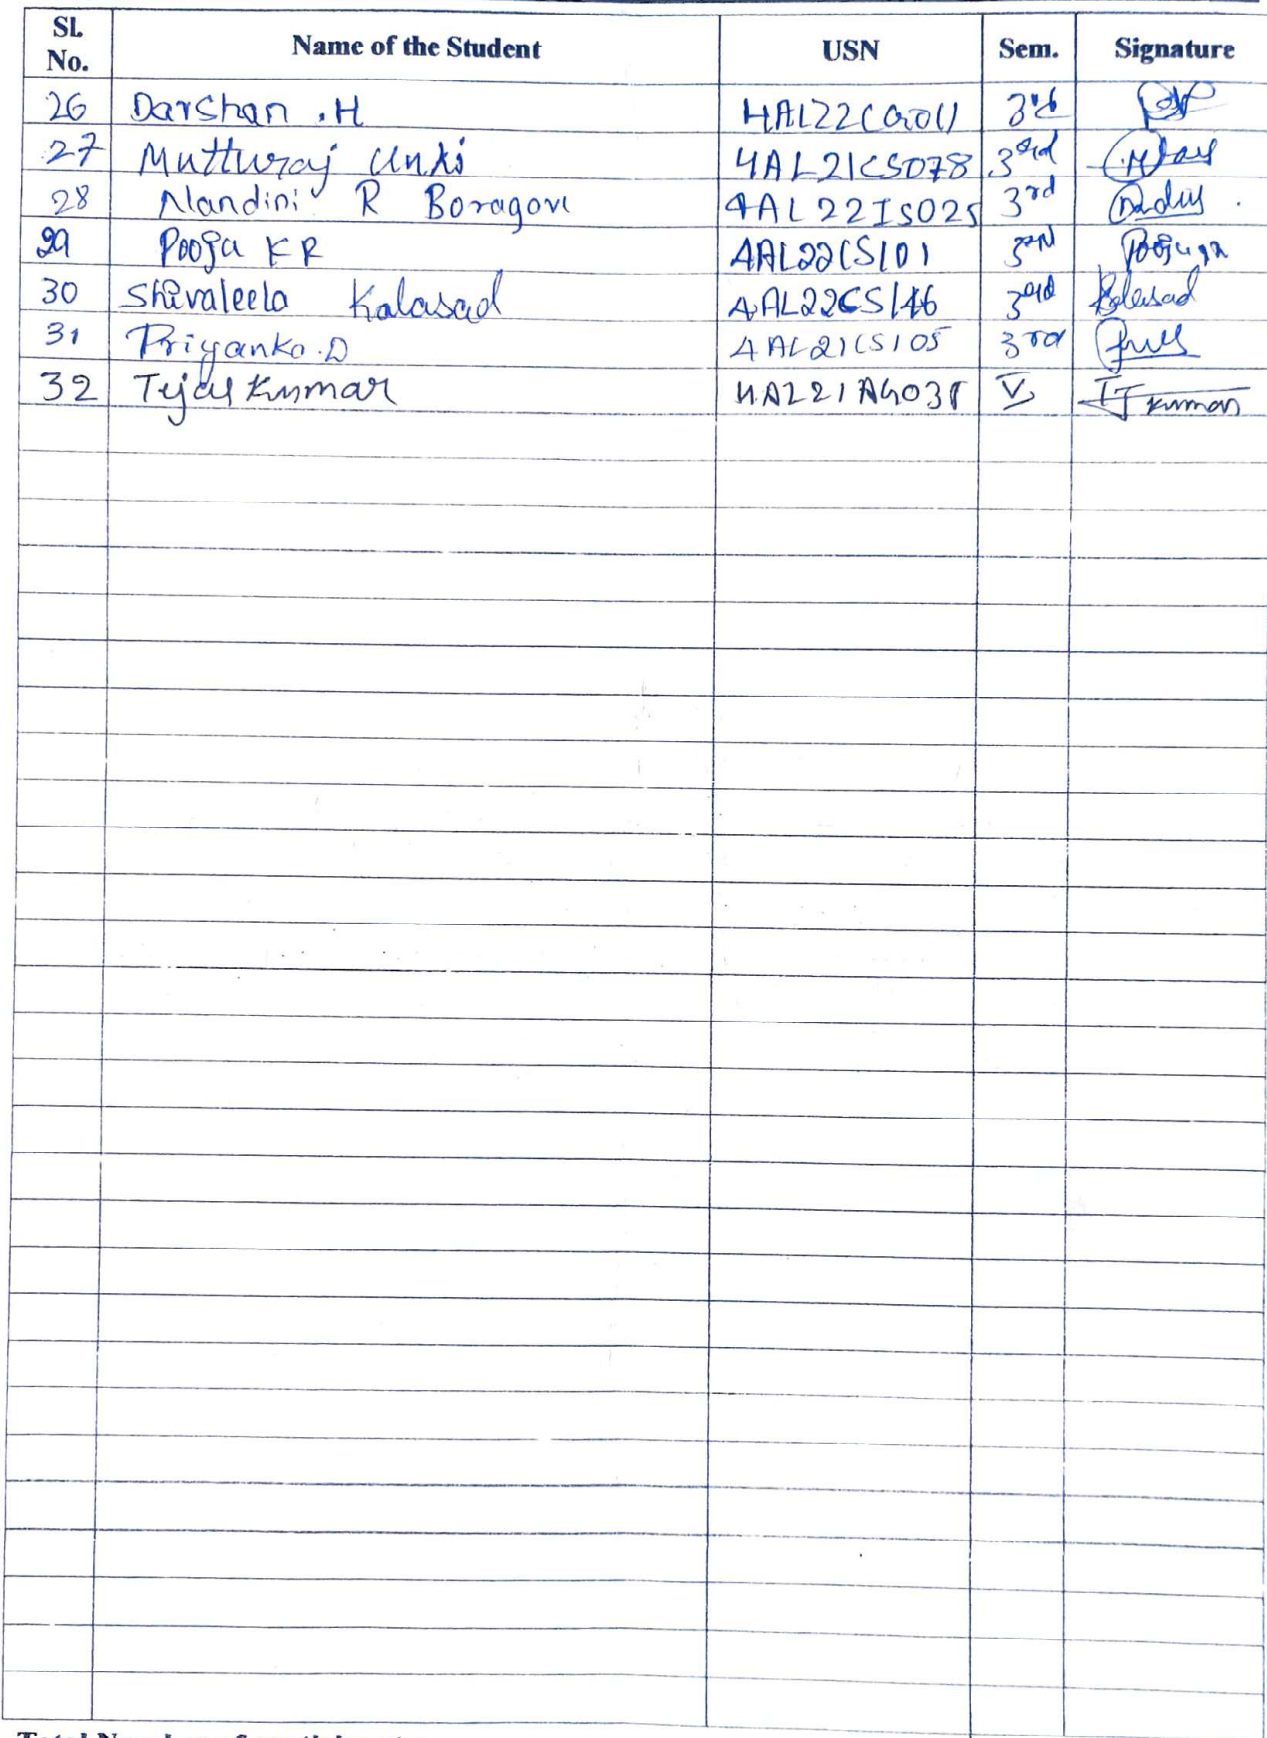 SL No. Name of the Student USN Sem. Signature
26 Darshan .H 4AL22CG011 3rd
27 Mutturaj Unki 4AL21CS078 3rd
28 Nandini R Boragovi 4AL22IS025 3rd
29 Pooja KR 4AL22CS101 3rd
30 Shivaleela Kalasad 4AL22CS146 3rd Kalasad
31 Priyanka.D 4AL21CS105 3rd
32 Tejas Kumar 4AL21AG038 V TJ Kumar